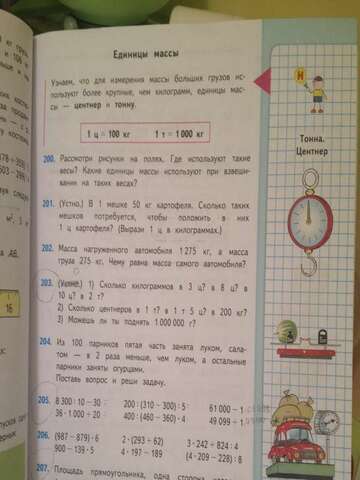 Единицы массы
Узнаем, что для измерения массы больших грузов ис-
пользуют более крупные, чем килограмм, единицы мас-
сы — центнер и тонну.
1 ц = 100 кг 1 т = 1 000 кг
Тонна.
Центнер
200. Рассмотри рисунки на полях. Где используют такие
весы? Какие единицы массы используют при взвеши-
вании на таких весах?
201. (Устно.) В 1 мешке 50 кг картофеля. Сколько таких
мешков потребуется, чтобы положить в них
1 ц картофеля? (Вырази 1 ц в килограммах.)
202. Масса нагруженного автомобиля 1 275 кг, а масса
груза 275 кг. Чему равна масса самого автомобиля?
203. (Устно.) 1) Сколько килограммов в 3 ц? в 8 ц? в
10 ц? в 2 т?
2) Сколько центнеров в 1 т? в 1 т 5 ц? в 200 кг?
3) Можешь ли ты поднять 1 000 000 г?
204. Из 100 парников пятая часть занята луком, сала-
том — в 2 раза меньше, чем луком, а остальные
парники заняты огурцами.
Поставь вопрос и реши задачу.
205. 8 300 : 10 − 30 : 200 : (310 − 300) : 5 61 000 − 1
36 · 1 000 : 20 400 : (460 − 360) · 4 49 099 + 1
206. (987 − 879) · 6 2 · (293 + 62) 3 · 242 + 824 : 4
900 − 139 · 5 4 · 197 − 189 (4 · 209 − 228) : 8
207. Площадь прямоугольника, одна сторона
АВ.
16